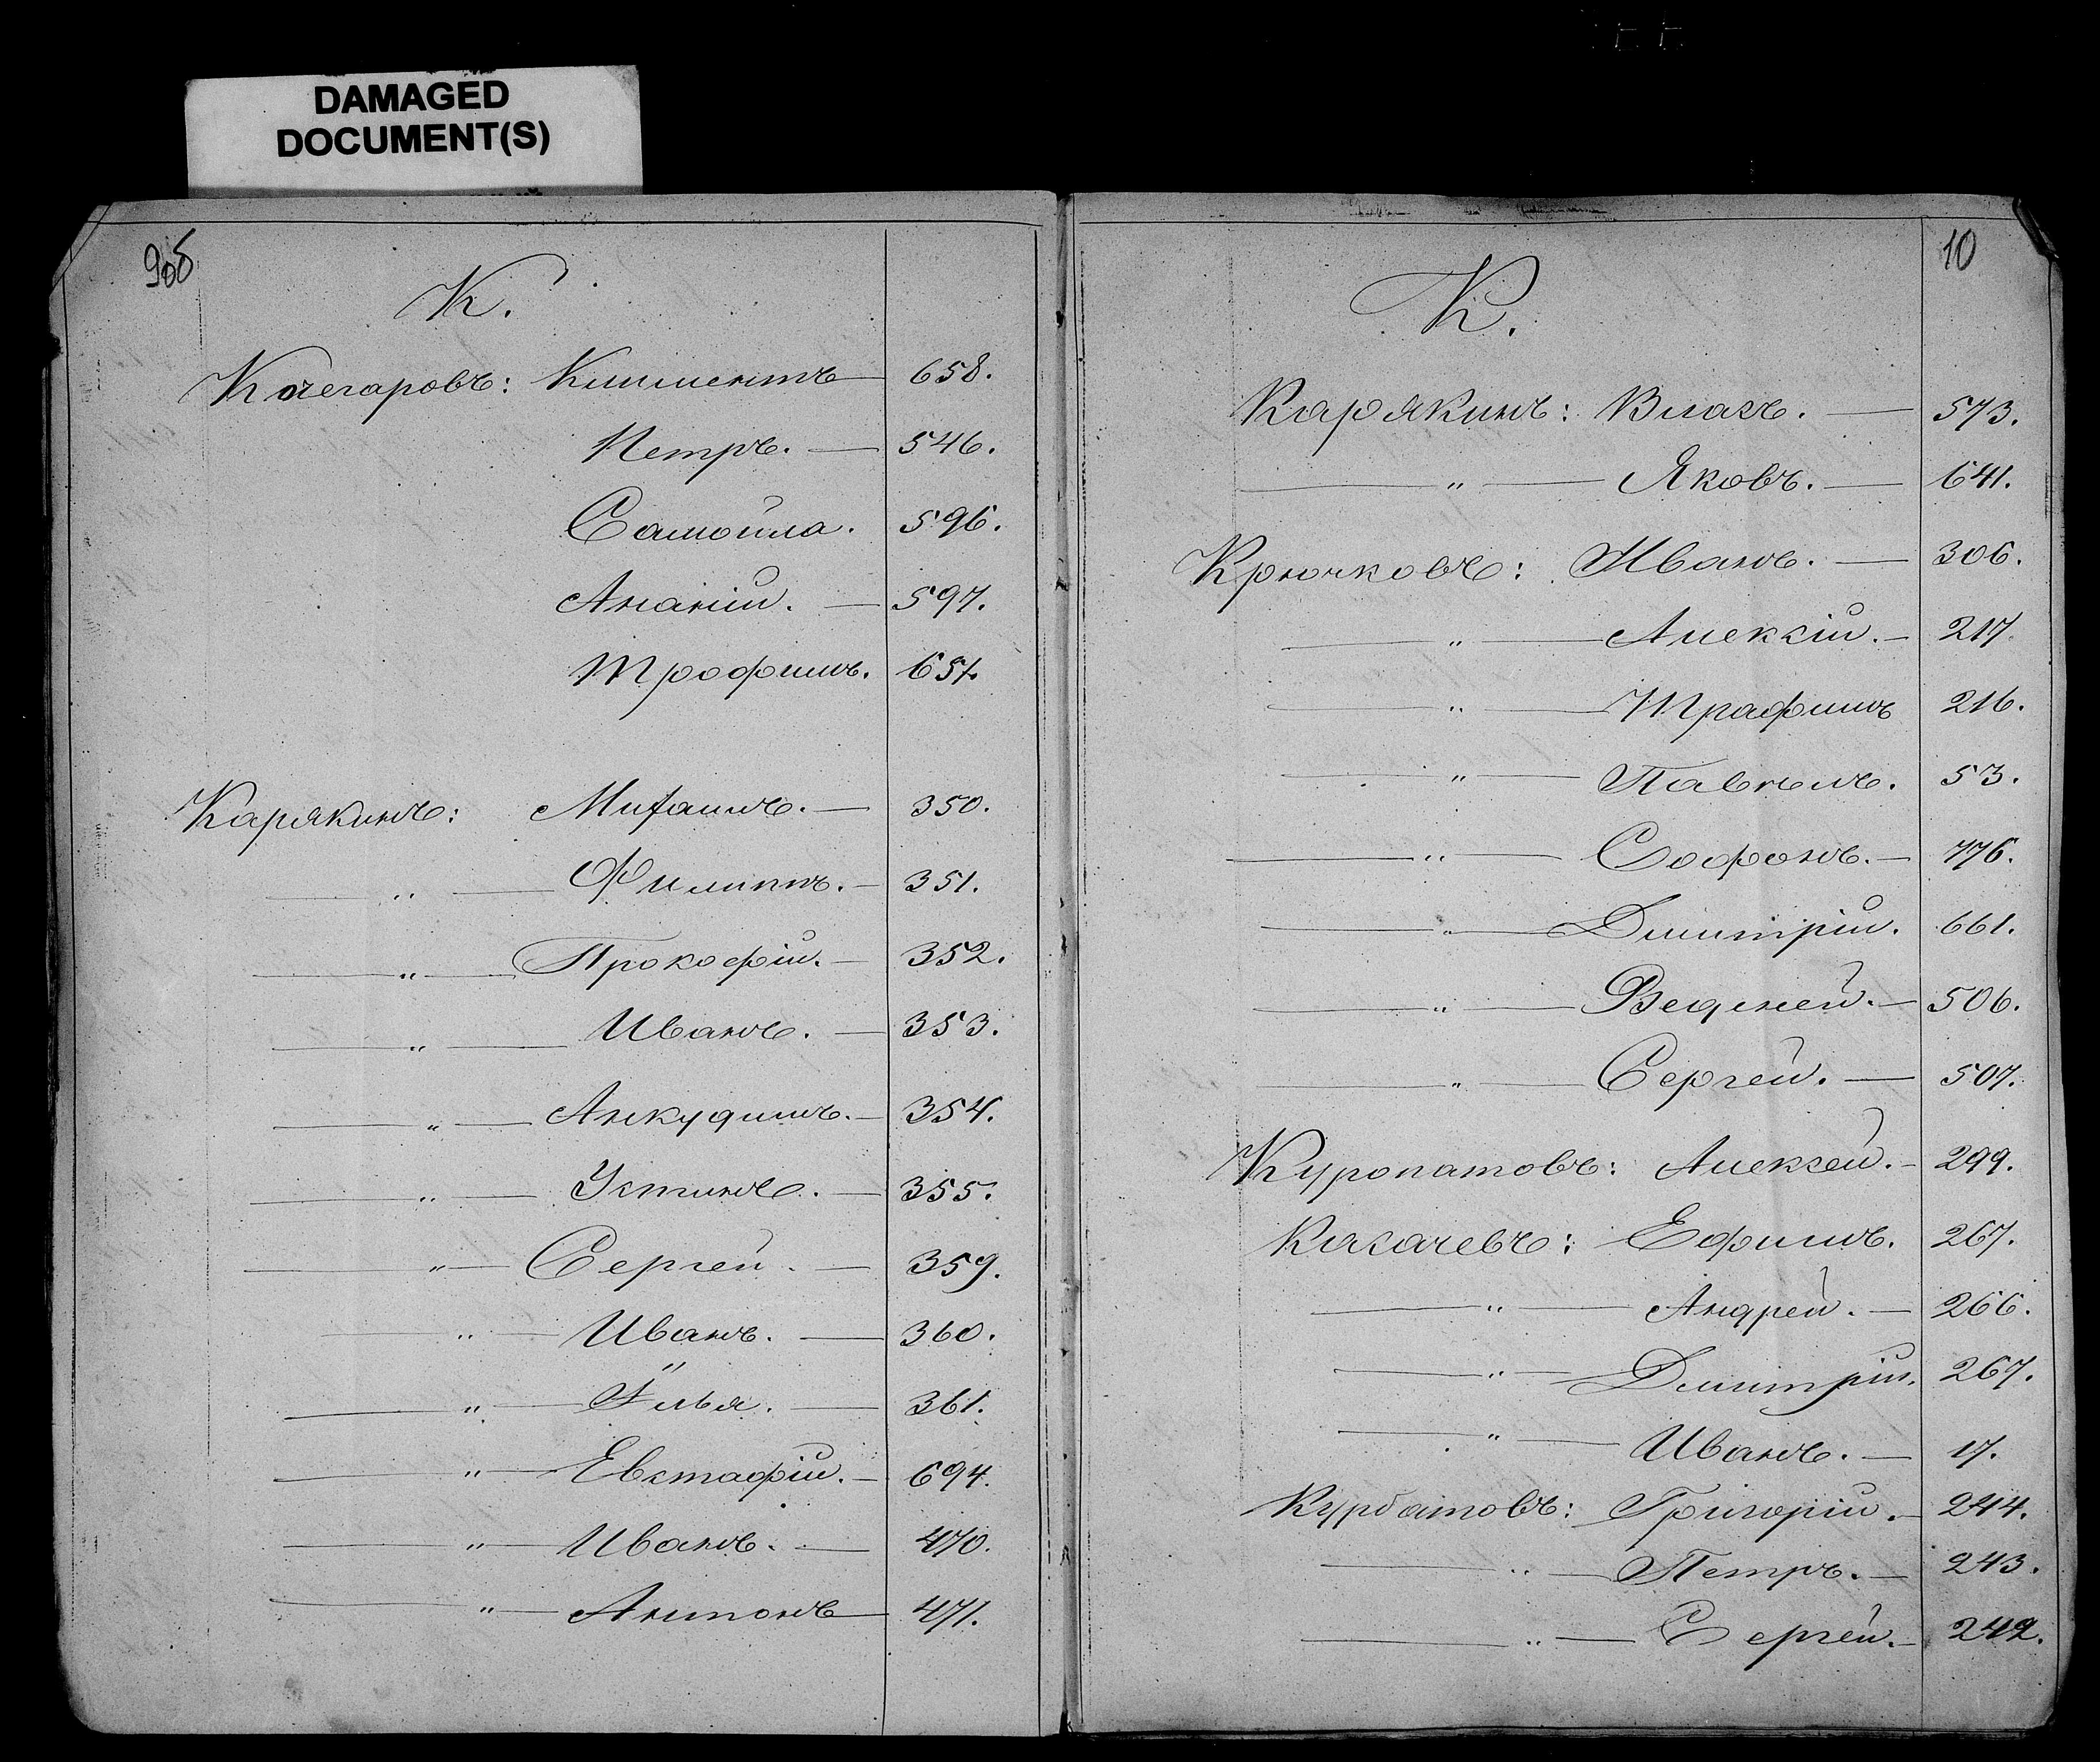 DAMAGED
DOCUMENT(S)
9об
К.
Кочегаровъ: Климентъ 658.
Петръ. — 546.
Самойла. 596.
Ананій. — 597.
Трофимъ. 657.
Карякинъ: Митаилъ. — 350.
" — Филиппъ. — 351.
" — Прокофій. — 352.
" — Иванъ. — 353.
" — Анкудинъ. — 354.
" — Устинъ. — 355.
" — Сергей. — 359.
" — Иванъ. — 360.
" — Илья. — 361.
" — Евстафій. — 694.
" — Иванъ. — 470.
" — Антонъ 471.
10
К.
Карякинъ: Власъ. — 573.
" — Яковъ. — 641.
Крючковъ: Иванъ. — 306.
" — Алексій. — 217.
" — Трафимъ 216.
" — Павелъ. 53.
" — Софонъ. — 776.
" — Димитрій. 661.
" — Веденей. — 506.
" — Сергей. — 507.
Куропатовъ: Алексей. — 299.
Казачевъ: Ефимъ. 267.
" — Андрей. — 266.
" — Дмитрій. 267.
" — Иванъ. — 17.
Курбатовъ: Григорій. — 244.
" — Петръ. — 243.
" — Сергей. — 242.